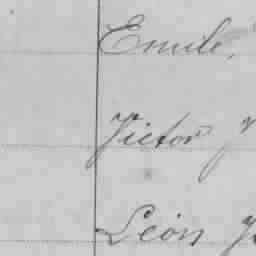 Emile,
Victor
Léon